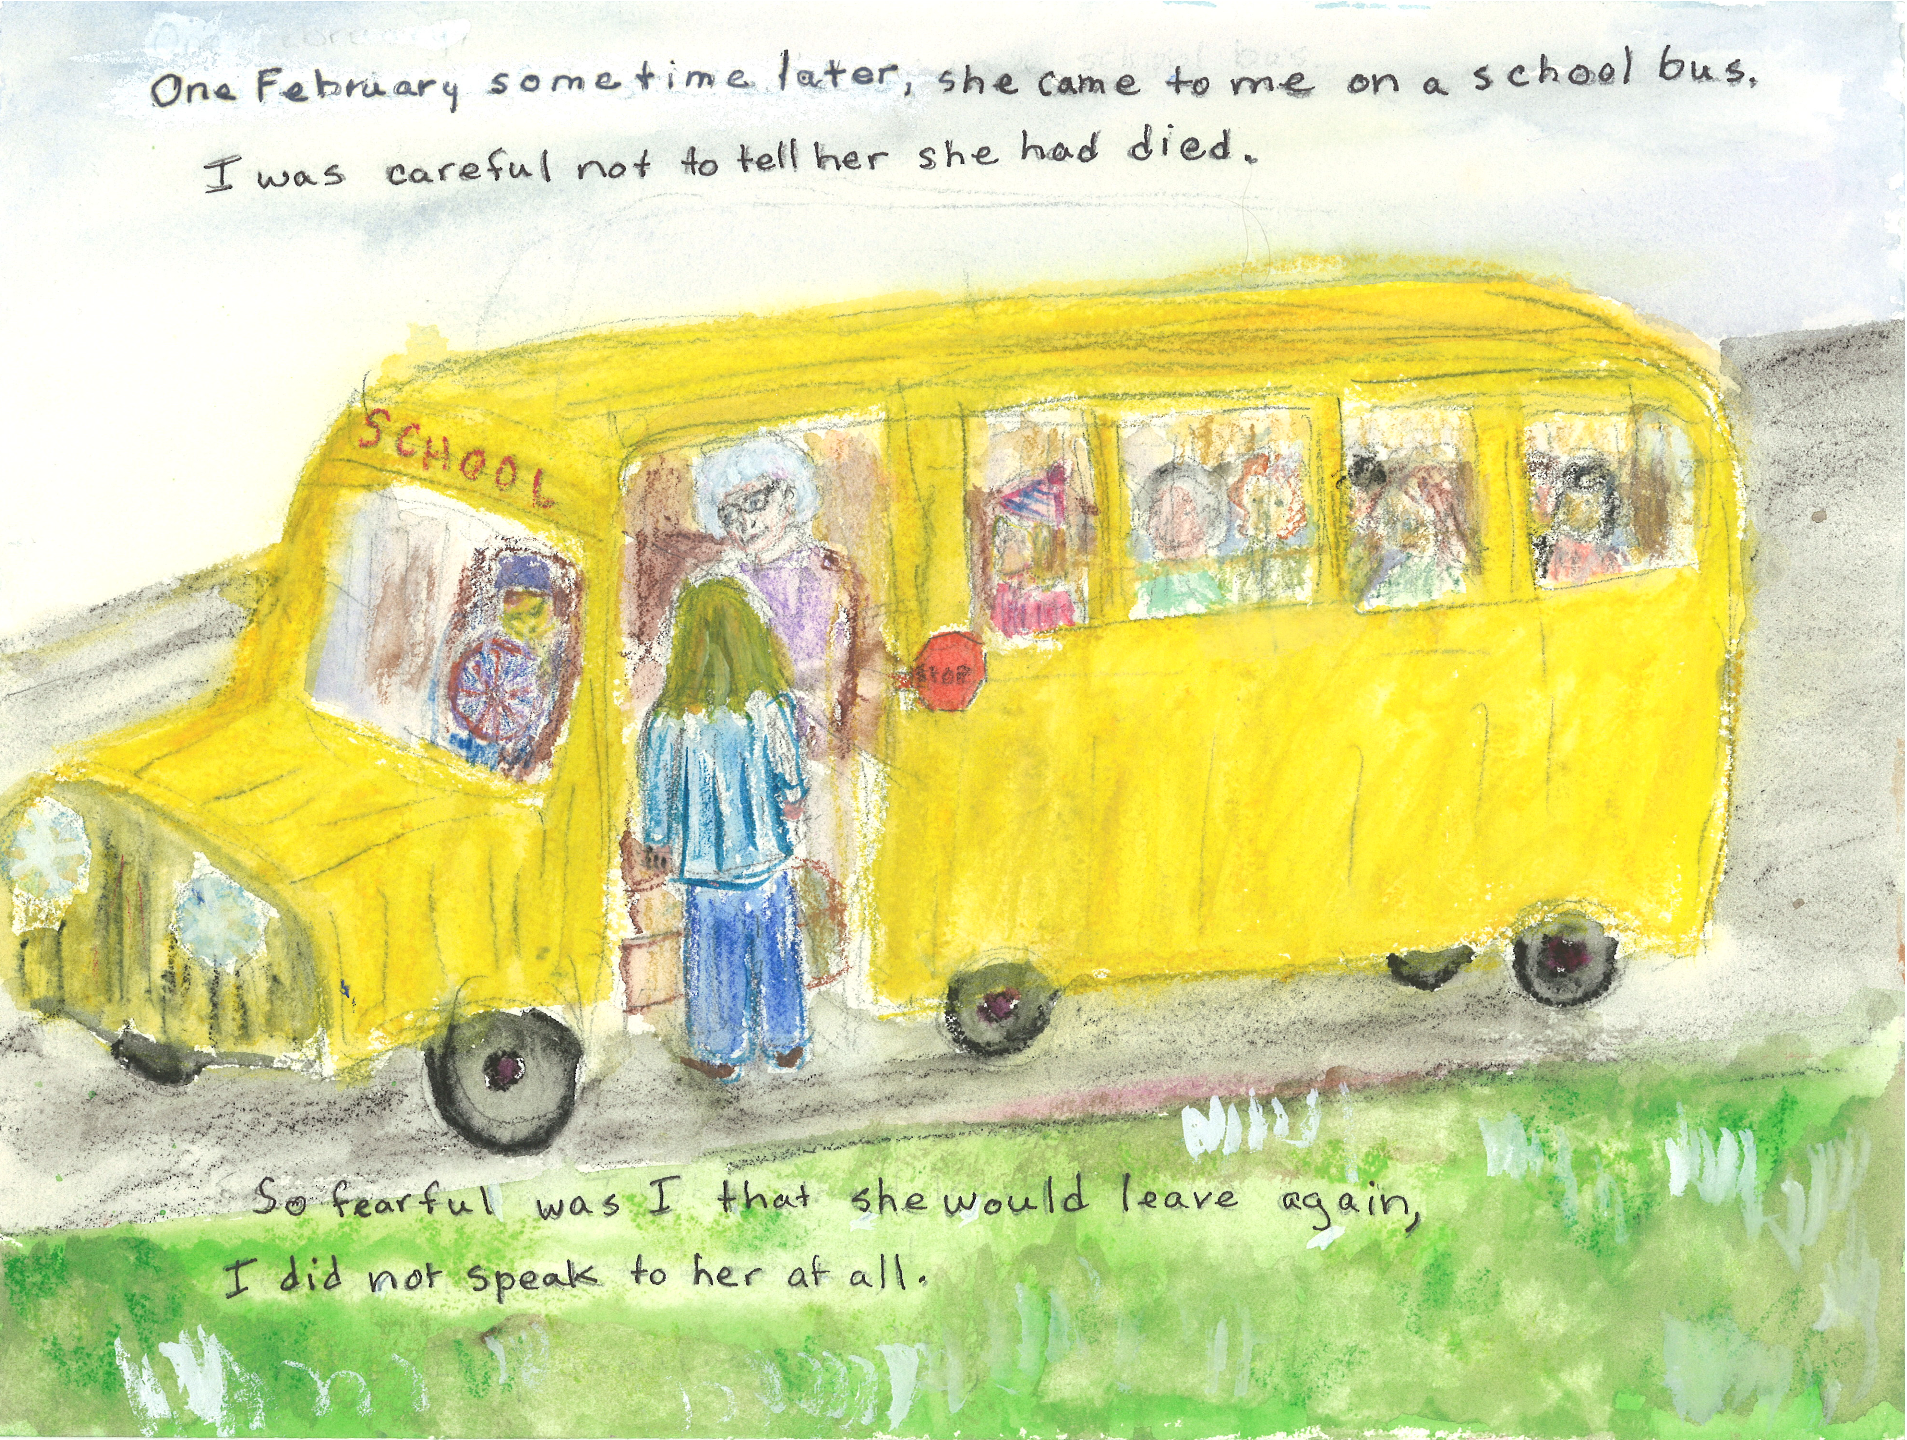 One February sometime later, she came to me on a school bus.
I was careful not to tell her she had died.
SCHOOL
STOP
So fearful was I that she would leave again,
I did not speak to her at all.